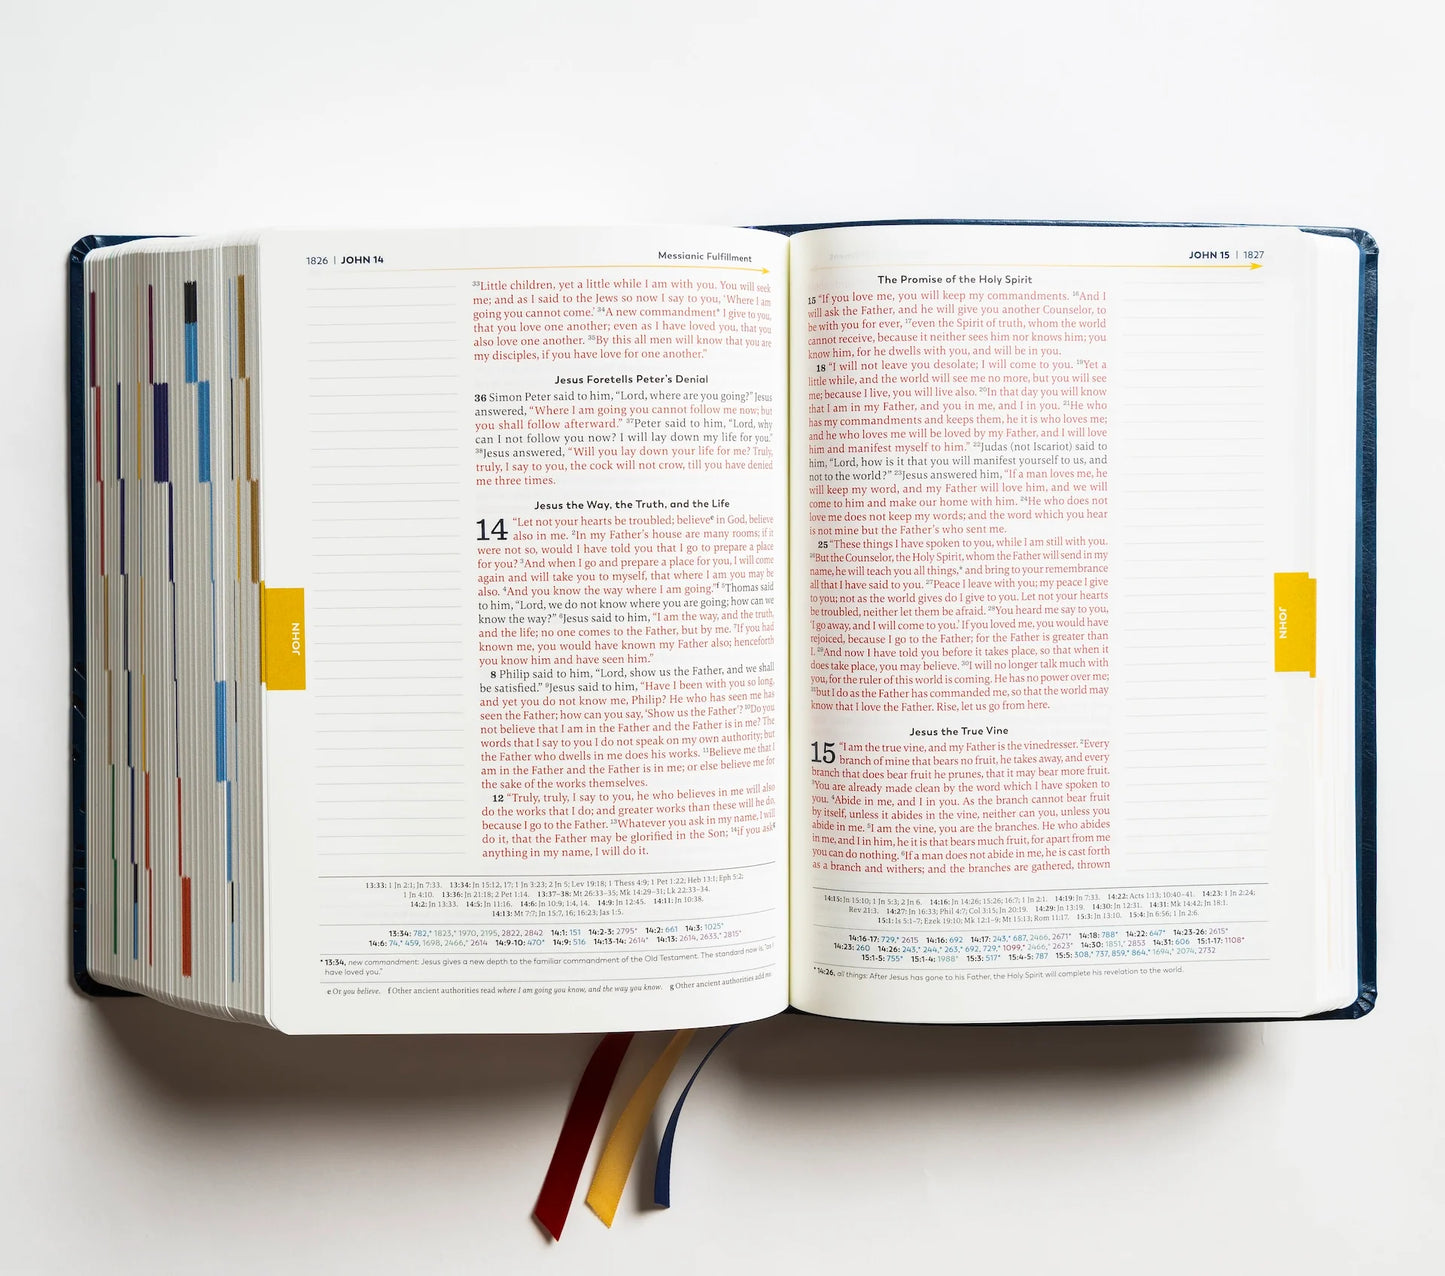 1826 | JOHN 14
Messianic Fulfillment
³³Little children, yet a little while I am with you. You will seek
me; and as I said to the Jews so now I say to you, ‘Where I am
going you cannot come.’ ³⁴A new commandment* I give to you,
that you love one another; even as I have loved you, that you
also love one another. ³⁵By this all men will know that you are
my disciples, if you have love for one another.”
Jesus Foretells Peter’s Denial
36 Simon Peter said to him, “Lord, where are you going?” Jesus
answered, “Where I am going you cannot follow me now; but
you shall follow afterward.” ³⁷Peter said to him, “Lord, why
can I not follow you now? I will lay down my life for you.”
³⁸Jesus answered, “Will you lay down your life for me? Truly,
truly, I say to you, the cock will not crow, till you have denied
me three times.
Jesus the Way, the Truth, and the Life
14 “Let not your hearts be troubled; believeᵉ in God, believe
also in me. ²In my Father’s house are many rooms; if it
were not so, would I have told you that I go to prepare a place
for you? ³And when I go and prepare a place for you, I will come
again and will take you to myself, that where I am you may be
also. ⁴And you know the way where I am going.”ᶠ ⁵Thomas said
to him, “Lord, we do not know where you are going; how can we
know the way?” ⁶Jesus said to him, “I am the way, and the truth,
and the life; no one comes to the Father, but by me. ⁷If you had
known me, you would have known my Father also; henceforth
you know him and have seen him.”
8 Philip said to him, “Lord, show us the Father, and we shall
be satisfied.” ⁹Jesus said to him, “Have I been with you so long,
and yet you do not know me, Philip? He who has seen me has
seen the Father; how can you say, ‘Show us the Father’? ¹⁰Do you
not believe that I am in the Father and the Father is in me? The
words that I say to you I do not speak on my own authority; but
the Father who dwells in me does his works. ¹¹Believe me that I
am in the Father and the Father is in me; or else believe me for
the sake of the works themselves.
12 “Truly, truly, I say to you, he who believes in me will also
do the works that I do; and greater works than these will he do,
because I go to the Father. ¹³Whatever you ask in my name, I will
do it, that the Father may be glorified in the Son; ¹⁴if you askᵍ
anything in my name, I will do it.
13:33: 1 Jn 2:1; Jn 7:33. 13:34: Jn 15:12, 17; 1 Jn 3:23; 2 Jn 5; Lev 19:18; 1 Thess 4:9; 1 Pet 1:22; Heb 13:1; Eph 5:2;
1 Jn 4:10. 13:36: Jn 21:18; 2 Pet 1:14. 13:37–38: Mt 26:33–35; Mk 14:29–31; Lk 22:33–34.
14:2: Jn 13:33. 14:5: Jn 11:16. 14:6: Jn 10:9; 1:4, 14. 14:9: Jn 12:45. 14:11: Jn 10:38.
14:13: Mt 7:7; Jn 15:7, 16; 16:23; Jas 1:5.
13:34: 782,* 1823,* 1970, 2195, 2822, 2842 14:1: 151 14:2-3: 2795* 14:2: 661 14:3: 1025*
14:6: 74,* 459, 1698, 2466,* 2614 14:9-10: 470* 14:9: 516 14:13-14: 2614* 14:13: 2614, 2633,* 2815*
* 13:34, new commandment: Jesus gives a new depth to the familiar commandment of the Old Testament. The standard now is, “as I
have loved you.”
e Or you believe. f Other ancient authorities read where I am going you know, and the way you know. g Other ancient authorities add me.
JOHN
JOHN 15 | 1827
The Promise of the Holy Spirit
15 “If you love me, you will keep my commandments. ¹⁶And I
will ask the Father, and he will give you another Counselor, to
be with you for ever, ¹⁷even the Spirit of truth, whom the world
cannot receive, because it neither sees him nor knows him; you
know him, for he dwells with you, and will be in you.
18 “I will not leave you desolate; I will come to you. ¹⁹Yet a
little while, and the world will see me no more, but you will see
me; because I live, you will live also. ²⁰In that day you will know
that I am in my Father, and you in me, and I in you. ²¹He who
has my commandments and keeps them, he it is who loves me;
and he who loves me will be loved by my Father, and I will love
him and manifest myself to him.” ²²Judas (not Iscariot) said to
him, “Lord, how is it that you will manifest yourself to us, and
not to the world?” ²³Jesus answered him, “If a man loves me, he
will keep my word, and my Father will love him, and we will
come to him and make our home with him. ²⁴He who does not
love me does not keep my words; and the word which you hear
is not mine but the Father’s who sent me.
25 “These things I have spoken to you, while I am still with you.
²⁶But the Counselor, the Holy Spirit, whom the Father will send in my
name, he will teach you all things,* and bring to your remembrance
all that I have said to you. ²⁷Peace I leave with you; my peace I give
to you; not as the world gives do I give to you. Let not your hearts
be troubled, neither let them be afraid. ²⁸You heard me say to you,
‘I go away, and I will come to you.’ If you loved me, you would have
rejoiced, because I go to the Father; for the Father is greater than
I. ²⁹And now I have told you before it takes place, so that when it
does take place, you may believe. ³⁰I will no longer talk much with
you, for the ruler of this world is coming. He has no power over me;
³¹but I do as the Father has commanded me, so that the world may
know that I love the Father. Rise, let us go from here.
Jesus the True Vine
15 “I am the true vine, and my Father is the vinedresser. ²Every
branch of mine that bears no fruit, he takes away, and every
branch that does bear fruit he prunes, that it may bear more fruit.
³You are already made clean by the word which I have spoken to
you. ⁴Abide in me, and I in you. As the branch cannot bear fruit
by itself, unless it abides in the vine, neither can you, unless you
abide in me. ⁵I am the vine, you are the branches. He who abides
in me, and I in him, he it is that bears much fruit, for apart from me
you can do nothing. ⁶If a man does not abide in me, he is cast forth
as a branch and withers; and the branches are gathered, thrown
14:15: Jn 15:10; 1 Jn 5:3; 2 Jn 6. 14:16: Jn 14:26; 15:26; 16:7; 1 Jn 2:1. 14:19: Jn 7:33. 14:22: Acts 1:13; 10:40–41. 14:23: 1 Jn 2:24;
Rev 21:3. 14:27: Jn 16:33; Phil 4:7; Col 3:15; Jn 20:19. 14:29: Jn 13:19. 14:30: Jn 12:31. 14:31: Mk 14:42; Jn 18:1.
15:1: Is 5:1–7; Ezek 19:10; Mk 12:1–9; Mt 15:13; Rom 11:17. 15:3: Jn 13:10. 15:4: Jn 6:56; 1 Jn 2:6.
14:16-17: 729,* 2615 14:16: 692 14:17: 243,* 687, 2466, 2671* 14:18: 788* 14:22: 647* 14:23-26: 2615*
14:23: 260 14:26: 243,* 244,* 263,* 692, 729,* 1099,* 2466,* 2623* 14:30: 1851,* 2853 14:31: 606 15:1-17: 1108*
15:1-5: 755* 15:1-4: 1988* 15:3: 517* 15:4-5: 787 15:5: 308,* 737, 859,* 864,* 1694,* 2074, 2732
* 14:26, all things: After Jesus has gone to his Father, the Holy Spirit will complete his revelation to the world.
JOHN